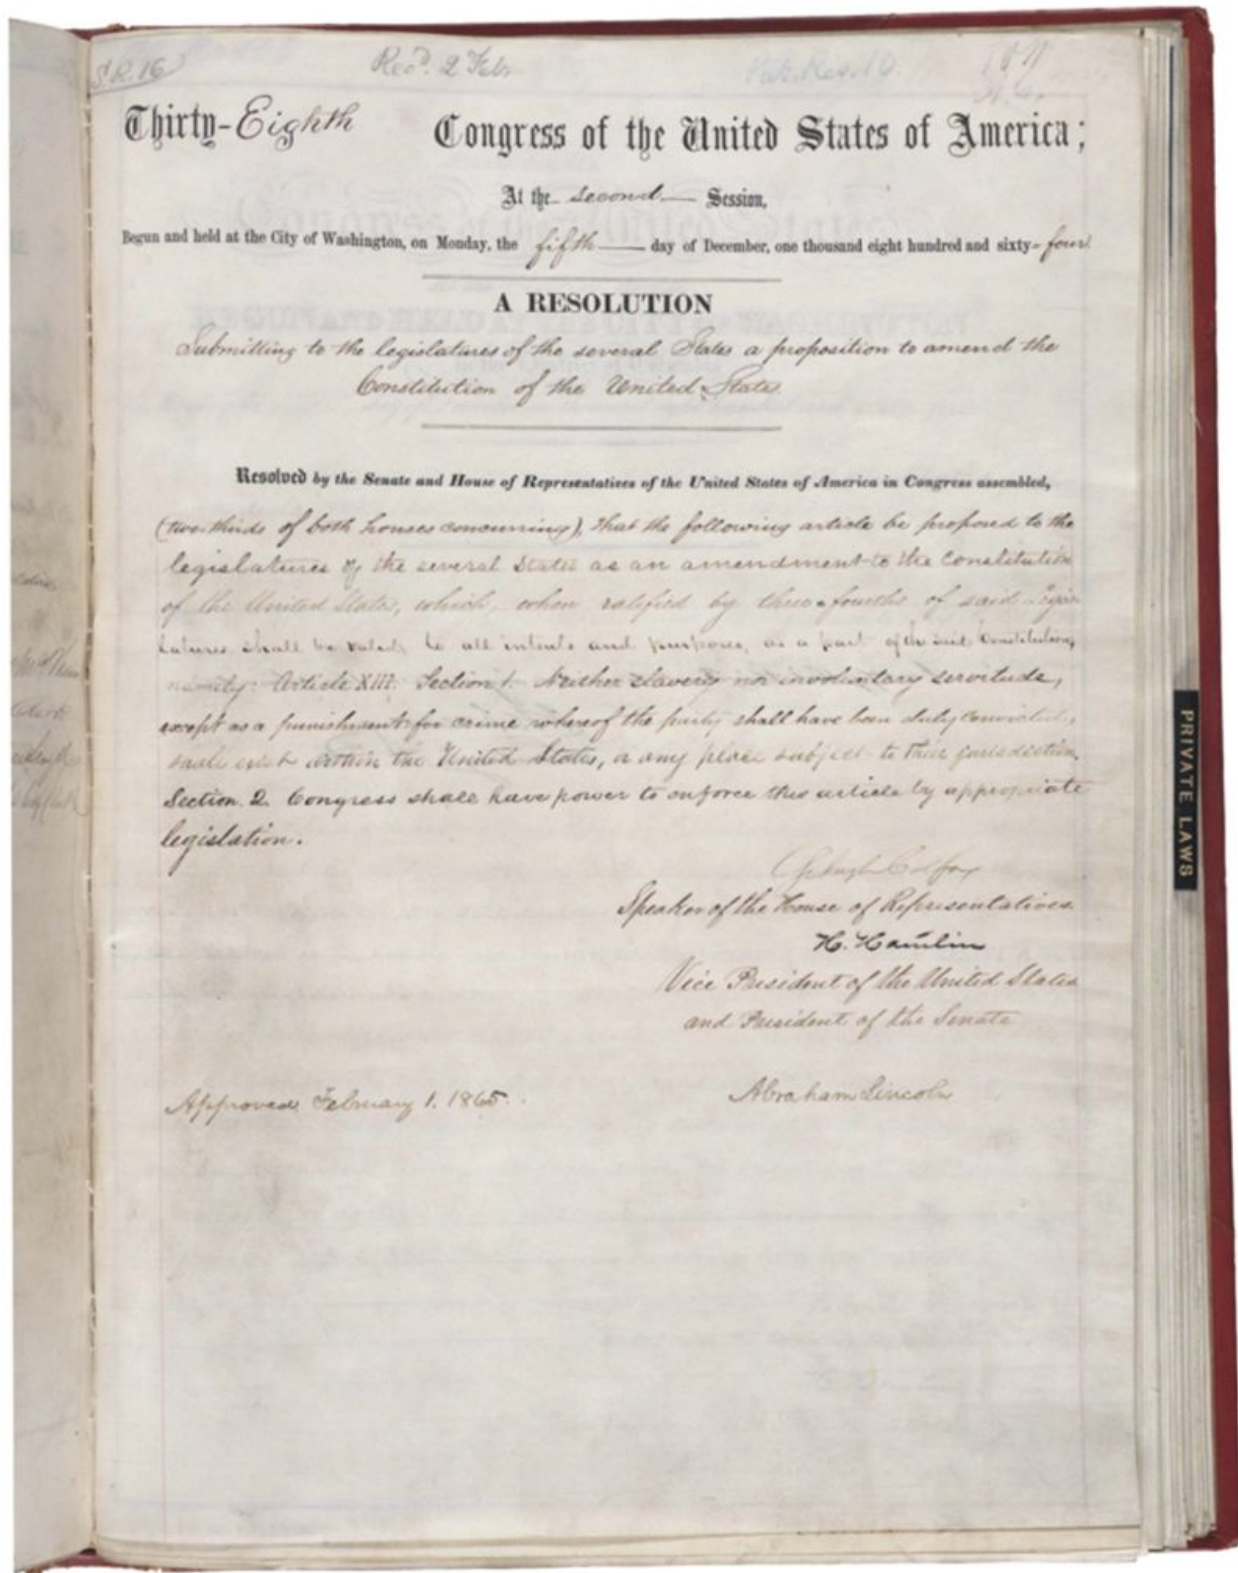 S.R. 16
Rec'd. 2 Feb.
Pub. Res. 10.
Thirty-Eighth Congress of the United States of America;
At the second Session,
Begun and held at the City of Washington, on Monday, the fifth day of December, one thousand eight hundred and sixty-four
A RESOLUTION
Submitting to the legislatures of the several States a proposition to amend the
Constitution of the United States.
Resolved by the Senate and House of Representatives of the United States of America in Congress assembled,
(two-thirds of both houses concurring), that the following article be proposed to the
legislatures of the several States as an amendment to the Constitution
of the United States, which, when ratified by three-fourths of said Legis-
latures shall be valid, to all intents and purposes, as a part of the said Constitution,
namely: Article XIII. Section 1. Neither slavery nor involuntary servitude,
except as a punishment for crime whereof the party shall have been duly convicted,
shall exist within the United States, or any place subject to their jurisdiction.
Section 2. Congress shall have power to enforce this article by appropriate
legislation.
Schuyler Colfax
Speaker of the House of Representatives.
H. Hamlin
Vice President of the United States
and President of the Senate
Approved, February 1. 1865.
Abraham Lincoln
PRIVATE LAWS